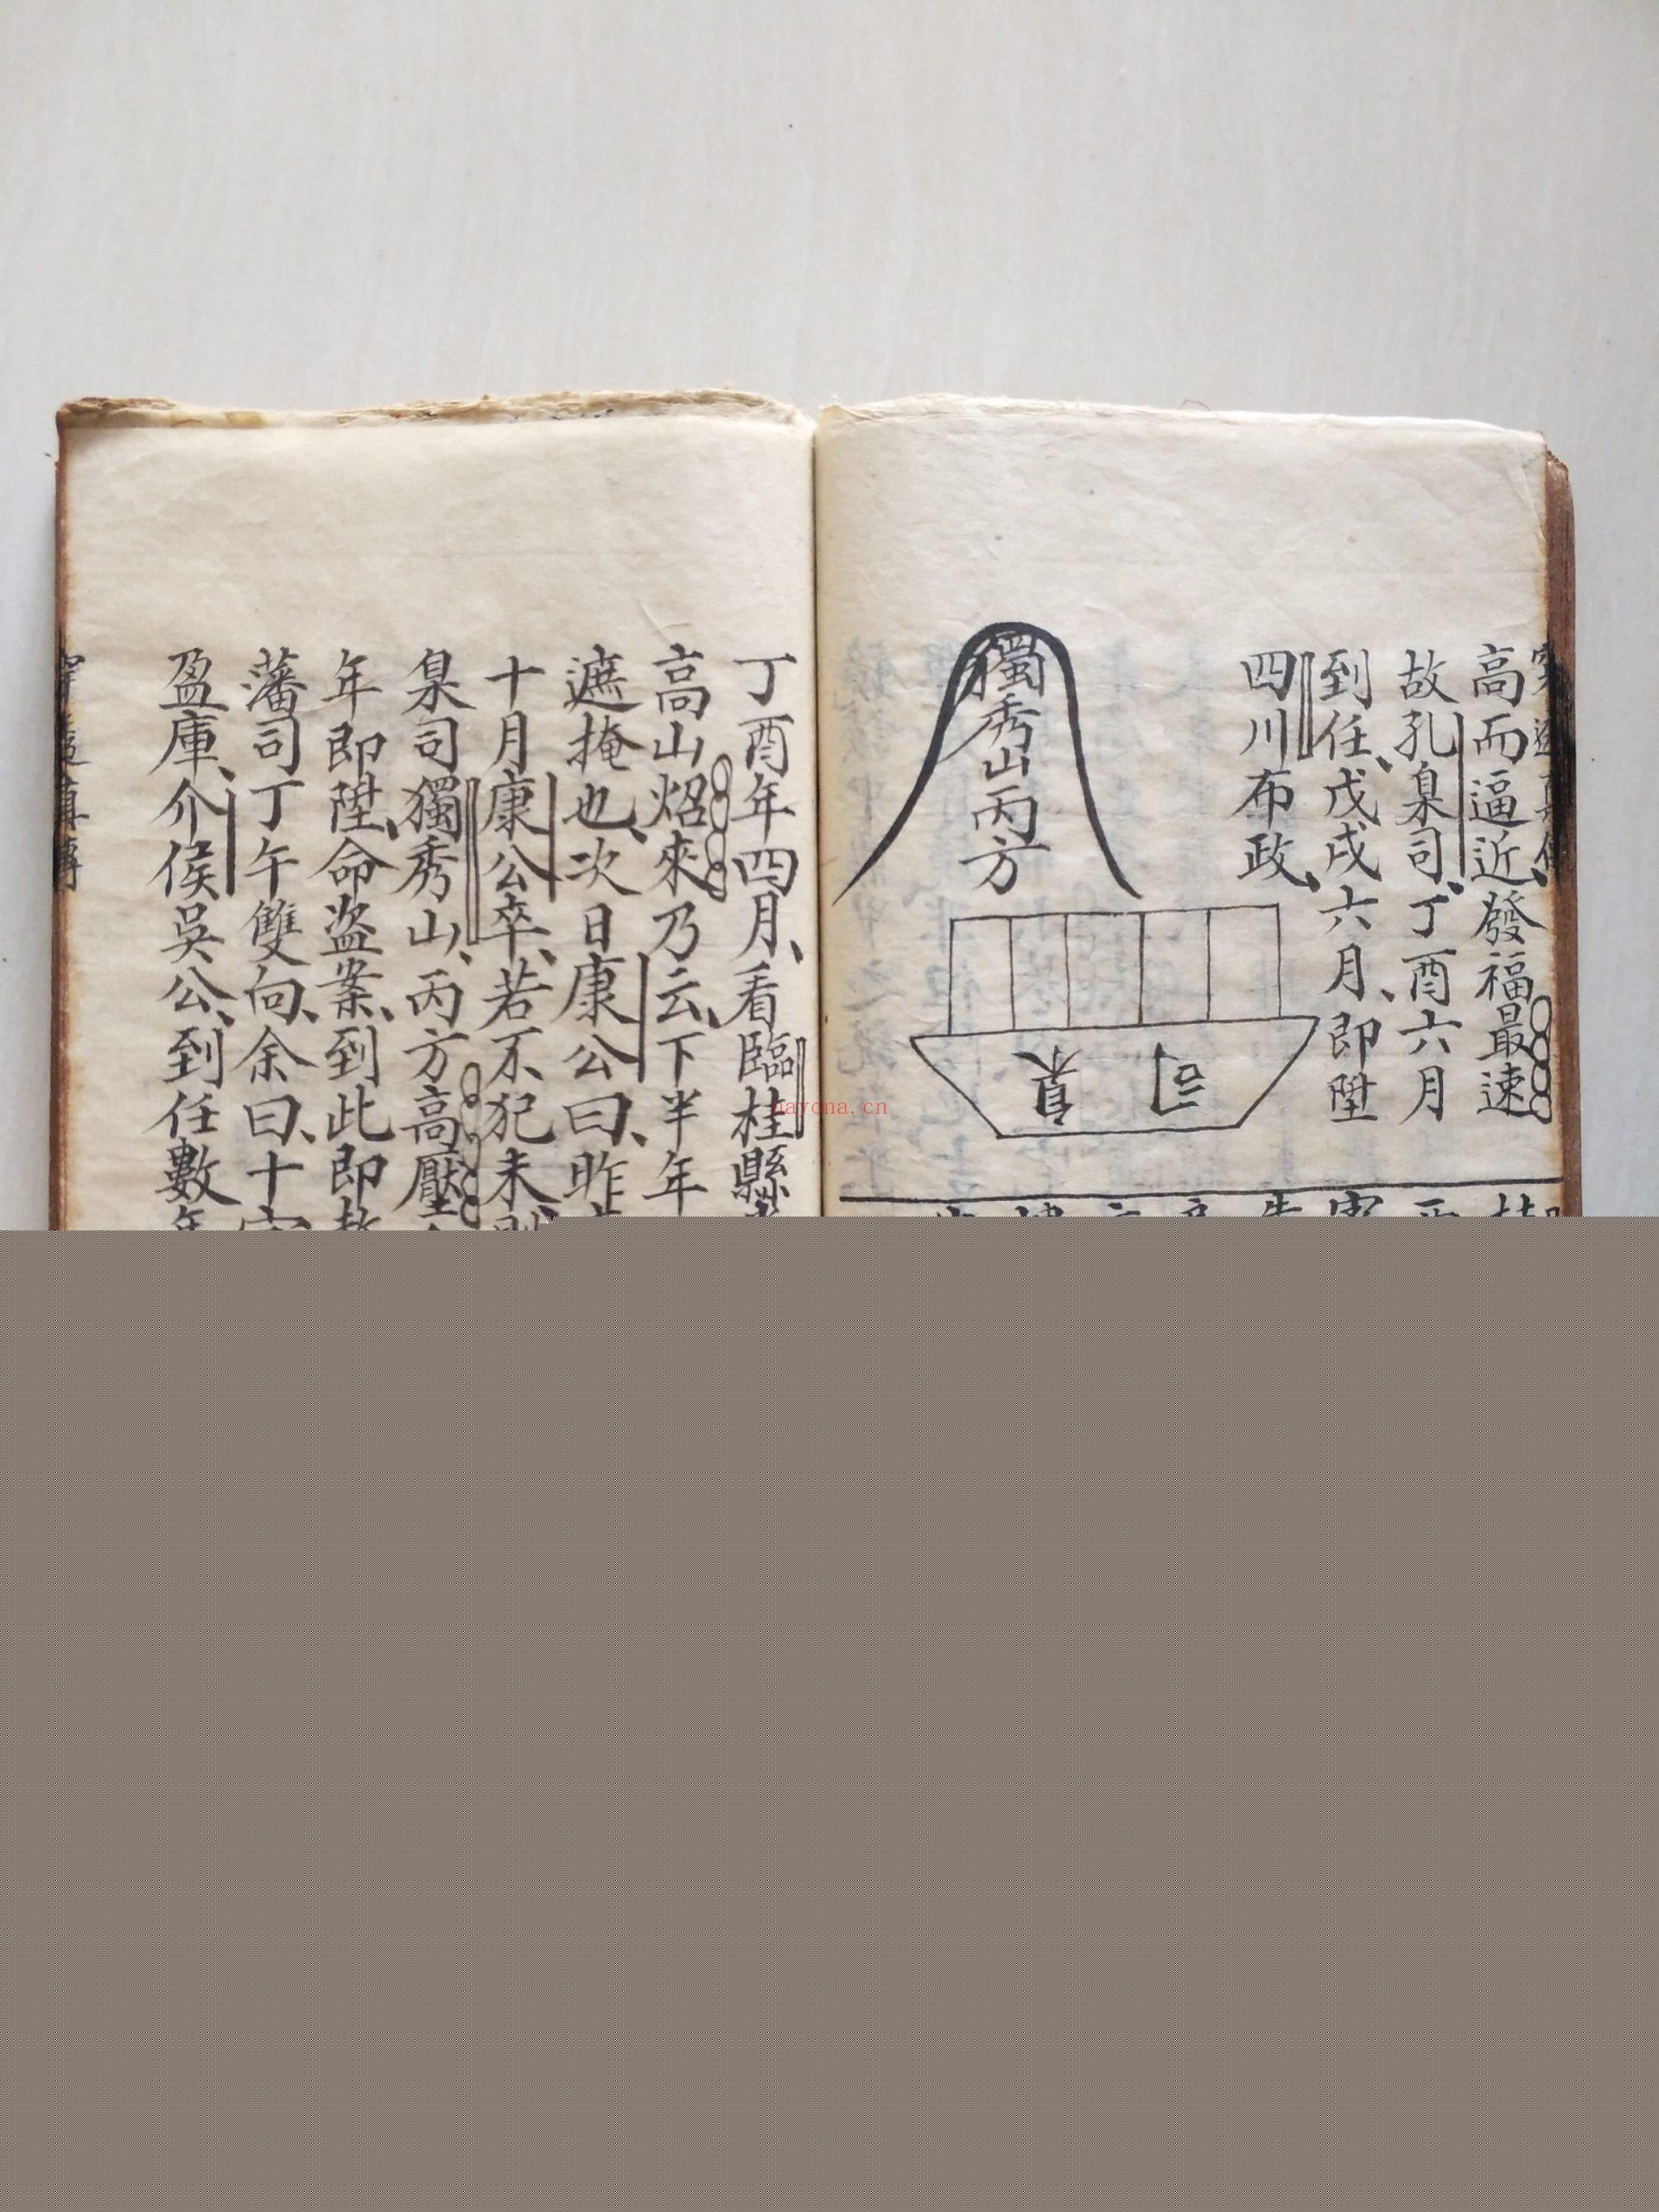 高而逼近、發福最速
故孔臬司、丁酉六月
到任、戊戌六月、即陞
四川布政、
獨秀山丙方
臬司
丁酉年四月、看臨桂縣
高山炤來乃云、下半年
遮掩也、次日康公曰、昨
十月康公卒、若不犯未
臬司獨秀山、丙方高壓
年即陞、命盜案、到此即
藩司丁午雙向、余曰、十
盈庫、介侯吳公、到任數年
nayona.cn